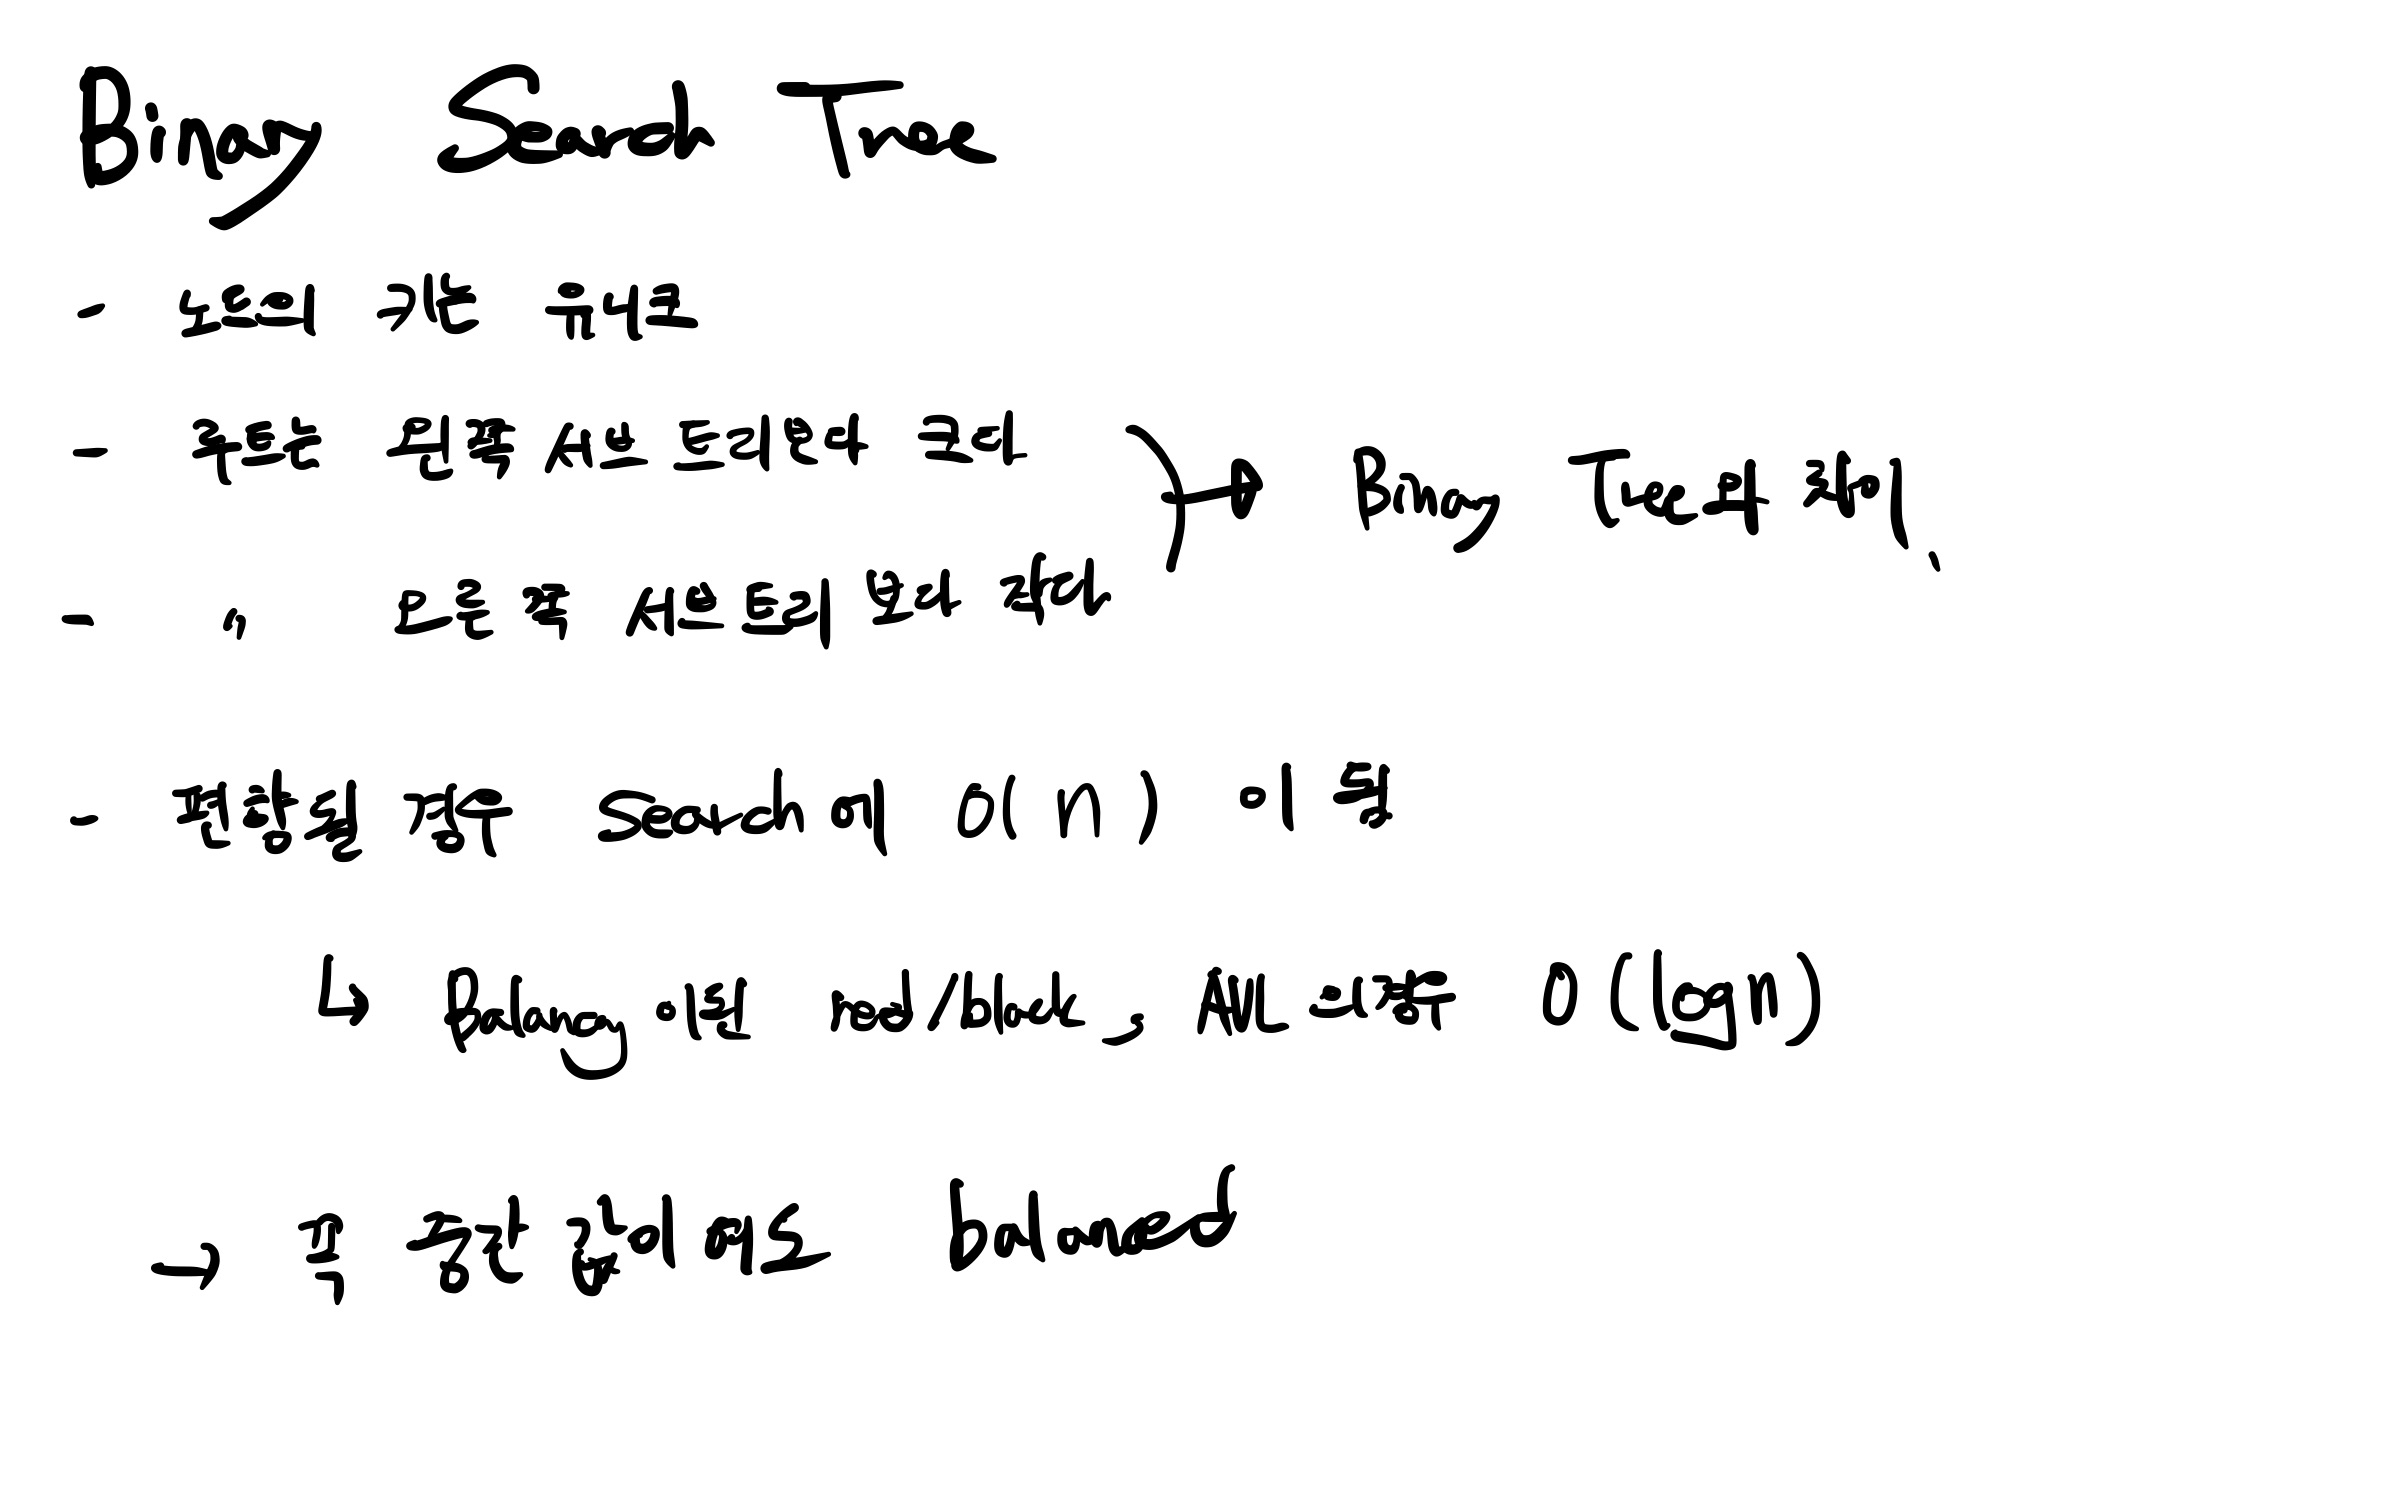 Binary Search Tree
- 노드의 키는 유니크
- 루트는 왼쪽 서브 트리보다 크다
- " 오른쪽 서브트리 보다 작다
Binary Tree의 차이.
- 편향될 경우 Search에 O(n) 이 됨
↳ Balancing 이런 red/black, AVL 의 경우 O(logn)
→ 즉 항상
balanced